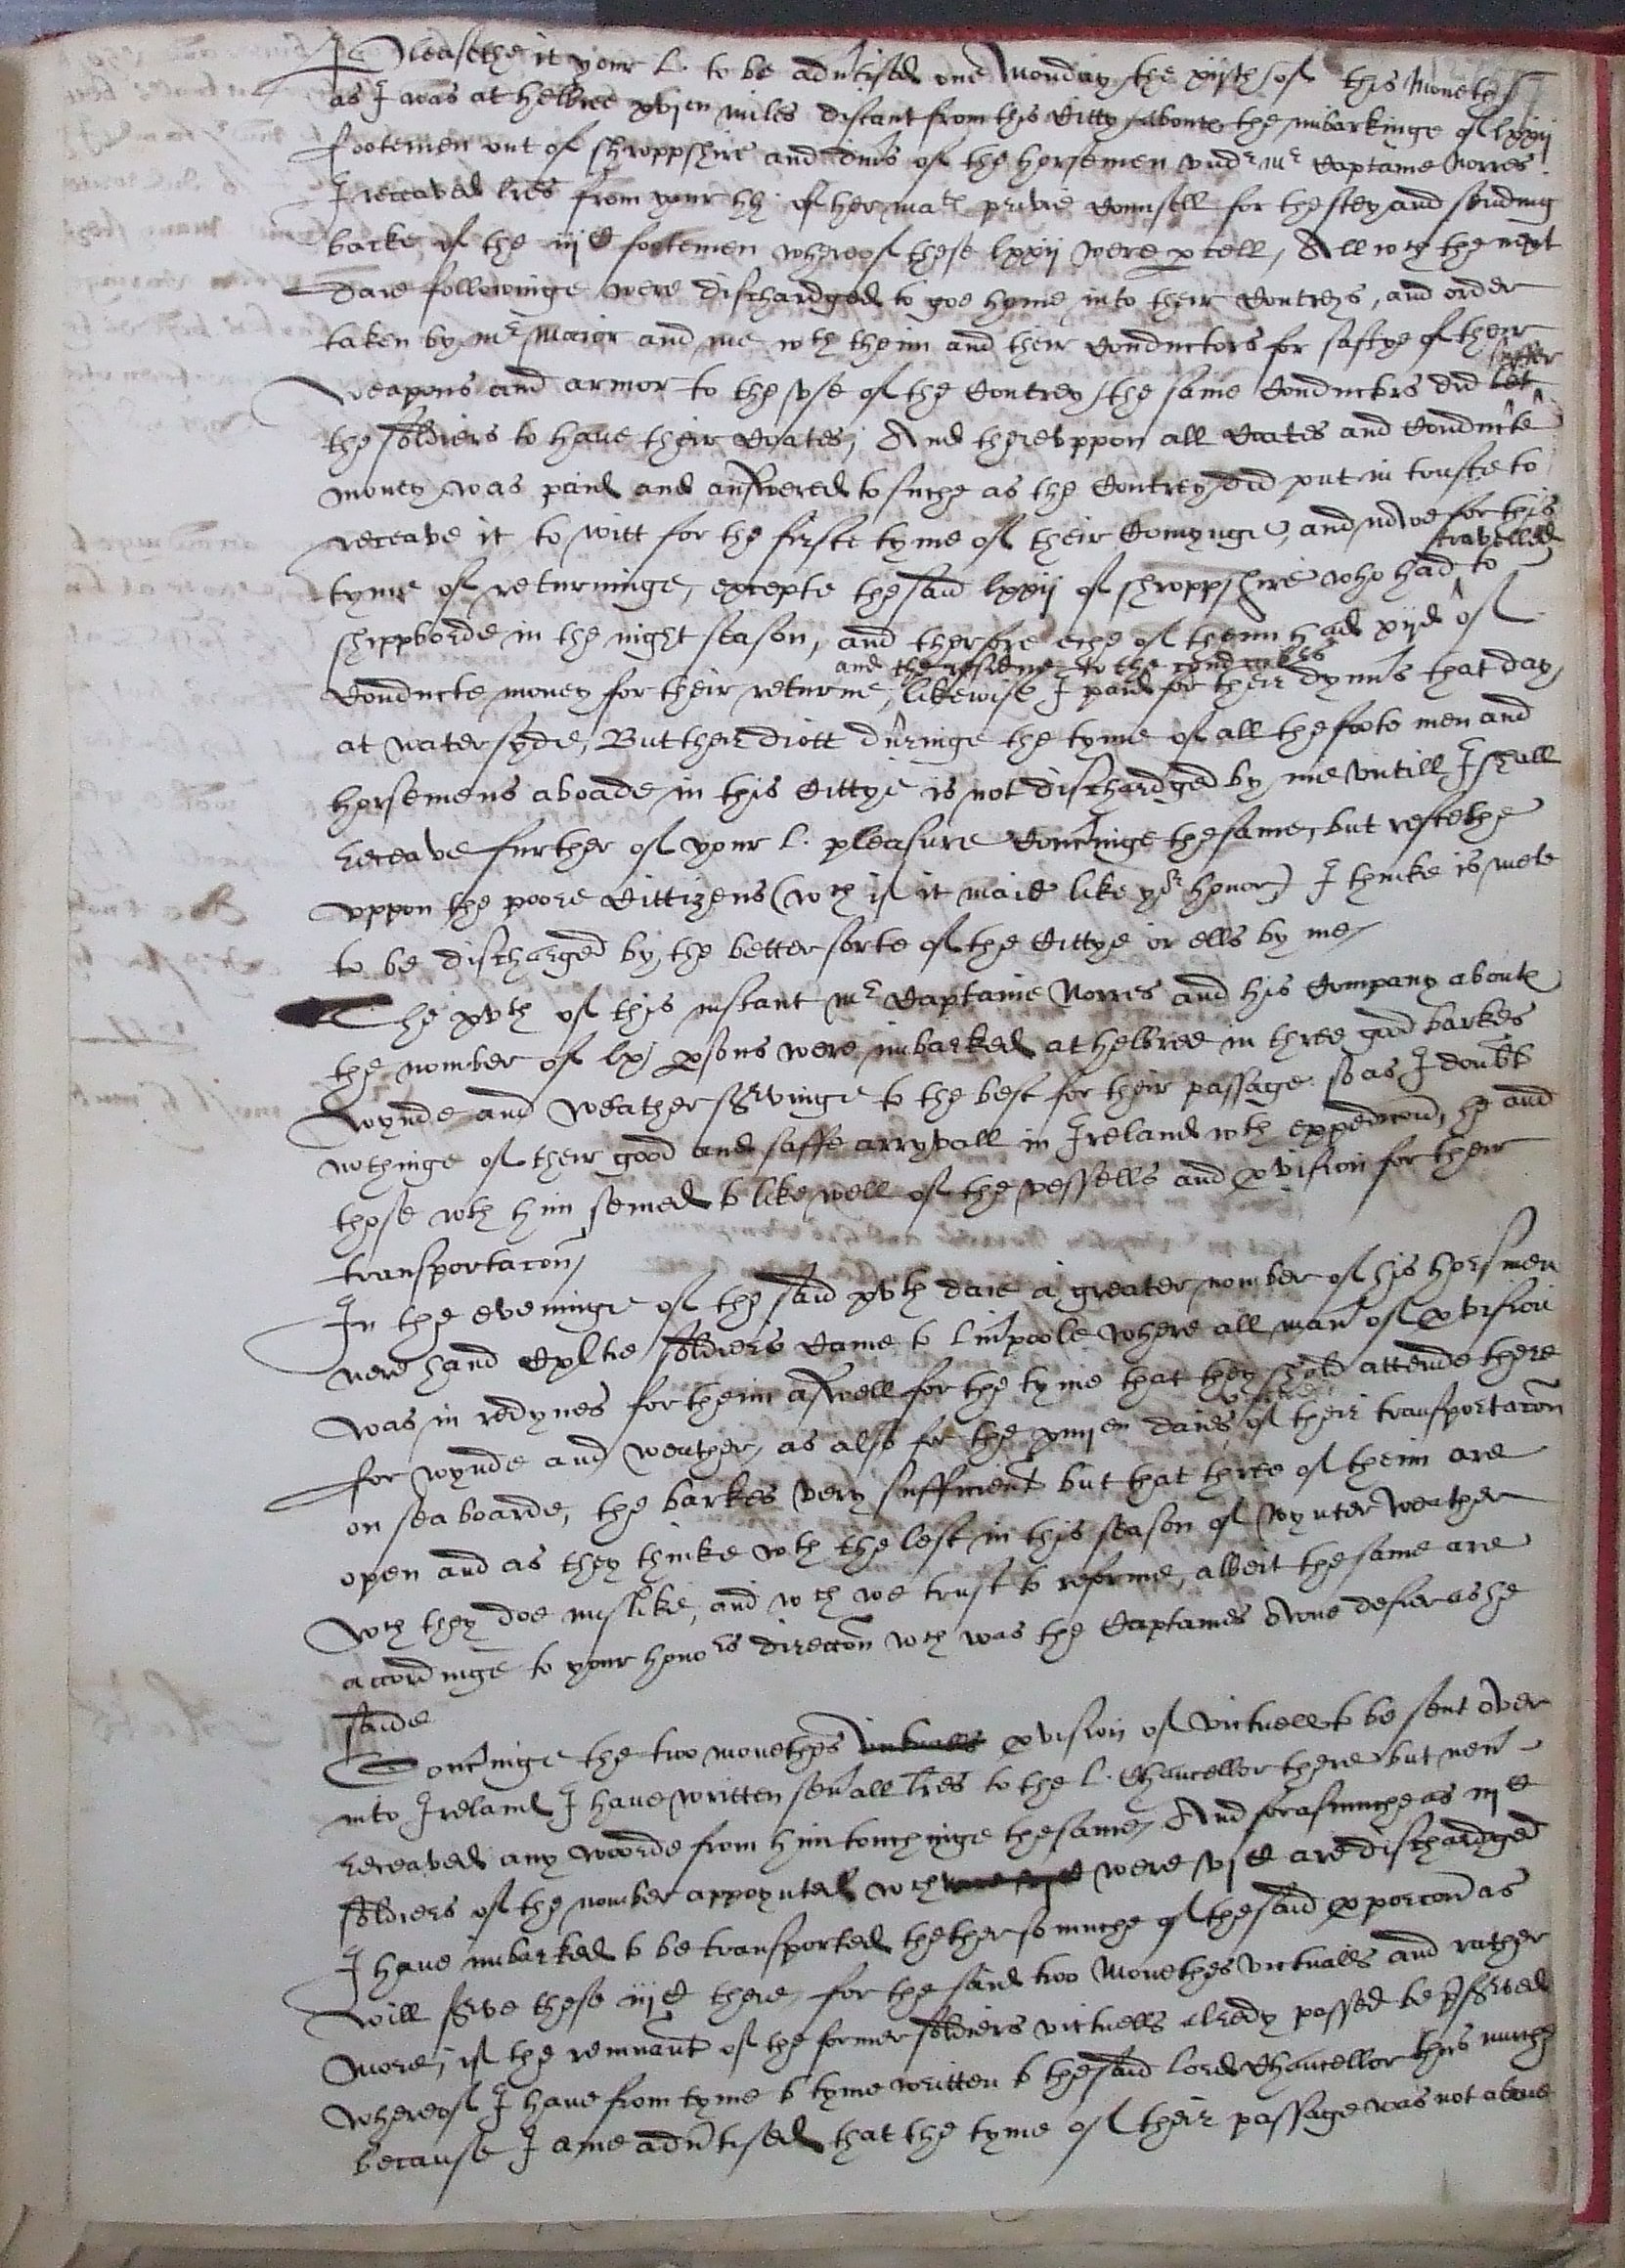 Pleasethe it your L. to be adv'tised one Monday the xijth of this Moneth
as I was at Helbree xvjen miles distant from this Citty aboute the imbarkinge of lxxij
footemen out of Shroppshire and div's of the horsemen und'r mr Captaine Norres
I receaved l'res from your hh. of her matis privie Counsell for the stey and sending
backe of the iijC footemen whereof these lxxij were p'cell, All wch the next
Daie followinge were dischardged to goe home into their Contreys, and order
taken by mr Maior and me wth theim and their Conductors for saftye of their
Weapons and armor to the use of the Contrey / the same Conductors did let suffer
the soldiers to have their Coates; And thereuppon all Coates and Conducte
money was paid and answered to suche as the Contrey did put in truste to
receave it to witt for the firste tyme of their Comynge, and nowe for this
tyme of returninge, excepte the said lxxij of Shroppshire who had travelled to
shippborde in the night season, and therfore eche of theim had xijd of
Conducte money for their returne, and the residue to the conductors likewise I paid for their dynn's that day
at watersyde, But their diett duringe the tyme of all the foote men and
horsemens aboade in this Cittye is not dischardged by me untill I shall
receave further of your L. pleasure Conc'ninge the same, but restethe
uppon the poore Cittizens (wch if it maie like yor honor) I thinke is mete
to be discharged by the better sorte of the Cittye or ells by me /
The xvth of this instant mr Captaine Norres and his Company aboute
the nomber of lxj p'sons were imbarked at helbree in three good barkes
Wynde and Weather servinge to the best for their passage: so as I doubt
nothinge of their good and saffe arryvall in Ireland wth expedic'on, he and
those wth him semed to like well of the vessells and p'vision for their
transportac'on /
In the eveninge of the said xvth daie a greater nomber of his horsmen
nere hand soldiers Came to Liu'poole where all man' of p'vision
was in redynes for theim aswell for the tyme that they shold attende there
for wynde and weather, as also for the xiiijen daies of their transportac'on
on sea boarde, the barkes very sufficient but that three of theim are
open and as they thinke wth the lest in this season of Wynter Weather
Wch they doe mislike, and wch we trust to reforme, albeit the same are
accordinge to your honors direcc'on wch was the Captaines owne desier as he
saide
Conc'ninge the two monethes victualls p'vision of victuell to be sent over
into Ireland I have written sev'all l'res to the L. Chancellor there but nev'
receaved any woorde from him touchinge the same / And forasmuche as iijC
soldiers of the nomber appoynted wch were vjC are dischardged
I have imbarked to be transported thether so muche of the said p'porc'on as
Will s've these iijC there, for the said two Monethes victualls and rather
More, if the remnant of the former soldiers victuells alredy passed be p's'ved
Whereof I have from tyme to tyme written to the said Lord Chancellor thus muche
because I ame adv'tised that the tyme of their passage was not above